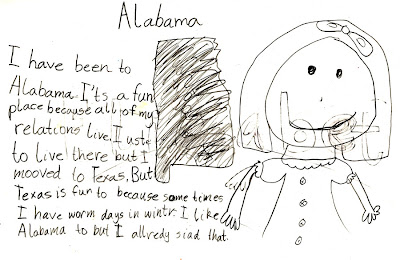 Alabama
I have been to
Alabama. I'ts a fun
place because all of my
relations live. I uste
to live there but I
mooved to Texas. But
Texas is fun to because some times
I have worm days in wintr. I like
Alabama to but I allredy siad that.